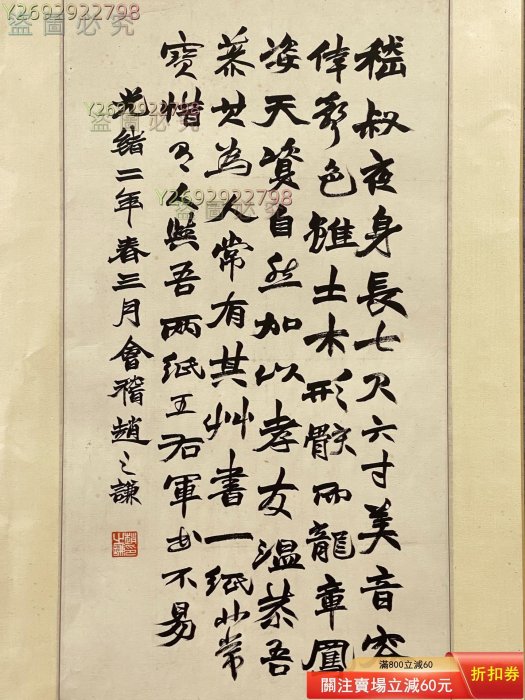 Y2692922798
盜圖必究
嵇叔夜身長七尺六寸美音容
偉色雖土木形骸而龍章鳳
姿天資自然加以孝友溫恭吾
慕其為人常有其艸書一紙非常
寶惜有人與吾兩紙王右軍書不易
光緒二年春三月會稽趙之謙
Y2692922798
盜圖必究
Y2692922798
盜圖必究
滿800立減60
關注賣場立減60元
折扣券